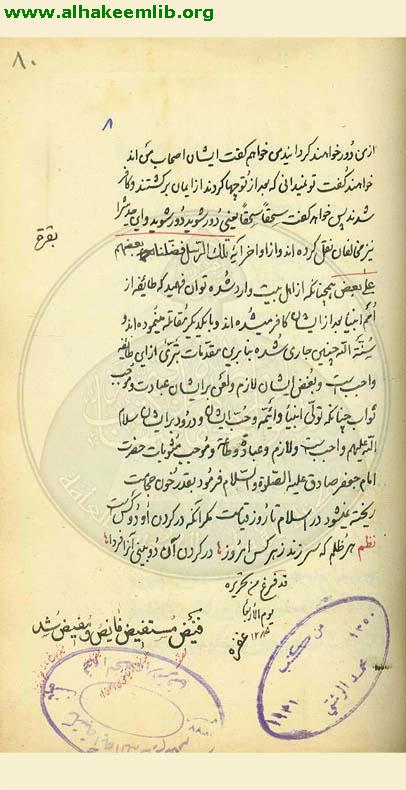 www.alhakeemlib.org
٨٠
٨
از من دور خواهند کردانید من خواهم کفت ایشان اصحاب من اند
خواهند کفت تو نمیدانی که بعد از تو چها کردند از ایمان برکشتند و کافر
شدند پس خواهد کفت سحقا سحقا یعنی دور شوید دور شوید و این حدیث را
نیز مخالفان نقل کرده اند و از اواخر آیه تلک الرسل فضلنا بعضهم
بقره
علی بعض چنانکه از اهل بیت وارد شده توان فهمید که طایفه از
امم انبیا بعد از ایشان کافر میشده اند و با یکدیکر مقاتله مینموده اند و
سنة الله چنین جاری شده بنا برین مقدمات تبری از این طایفه
واجب است و بغض ایشان لازم و لعن بر ایشان عبادت و موجب
ثواب چنانکه تولی انبیا و ائمه و حب ایشان و درود بر ایشان سلام
الله علیهم واجب است و لازم و عبادة و طاعة و موجب مثوبات حضرت
امام جعفر صادق علیه الصلوة و السلام فرمود بقدر خون حجامت
ریخته نمیشود در اسلام تا روز قیامت مکر آنکه در کردن آن دو کس است
نظم هر ظلم که سر زند ز هر کس امروز ها در کردن آن دو بینی آنرا فردا ها
قد فرغ من تحریره
یوم الاربعا
غره
فیض مستفیض فایض و مفیض شد
من کتب
محمد الرشتی
١٣٥٠
١٩٣١